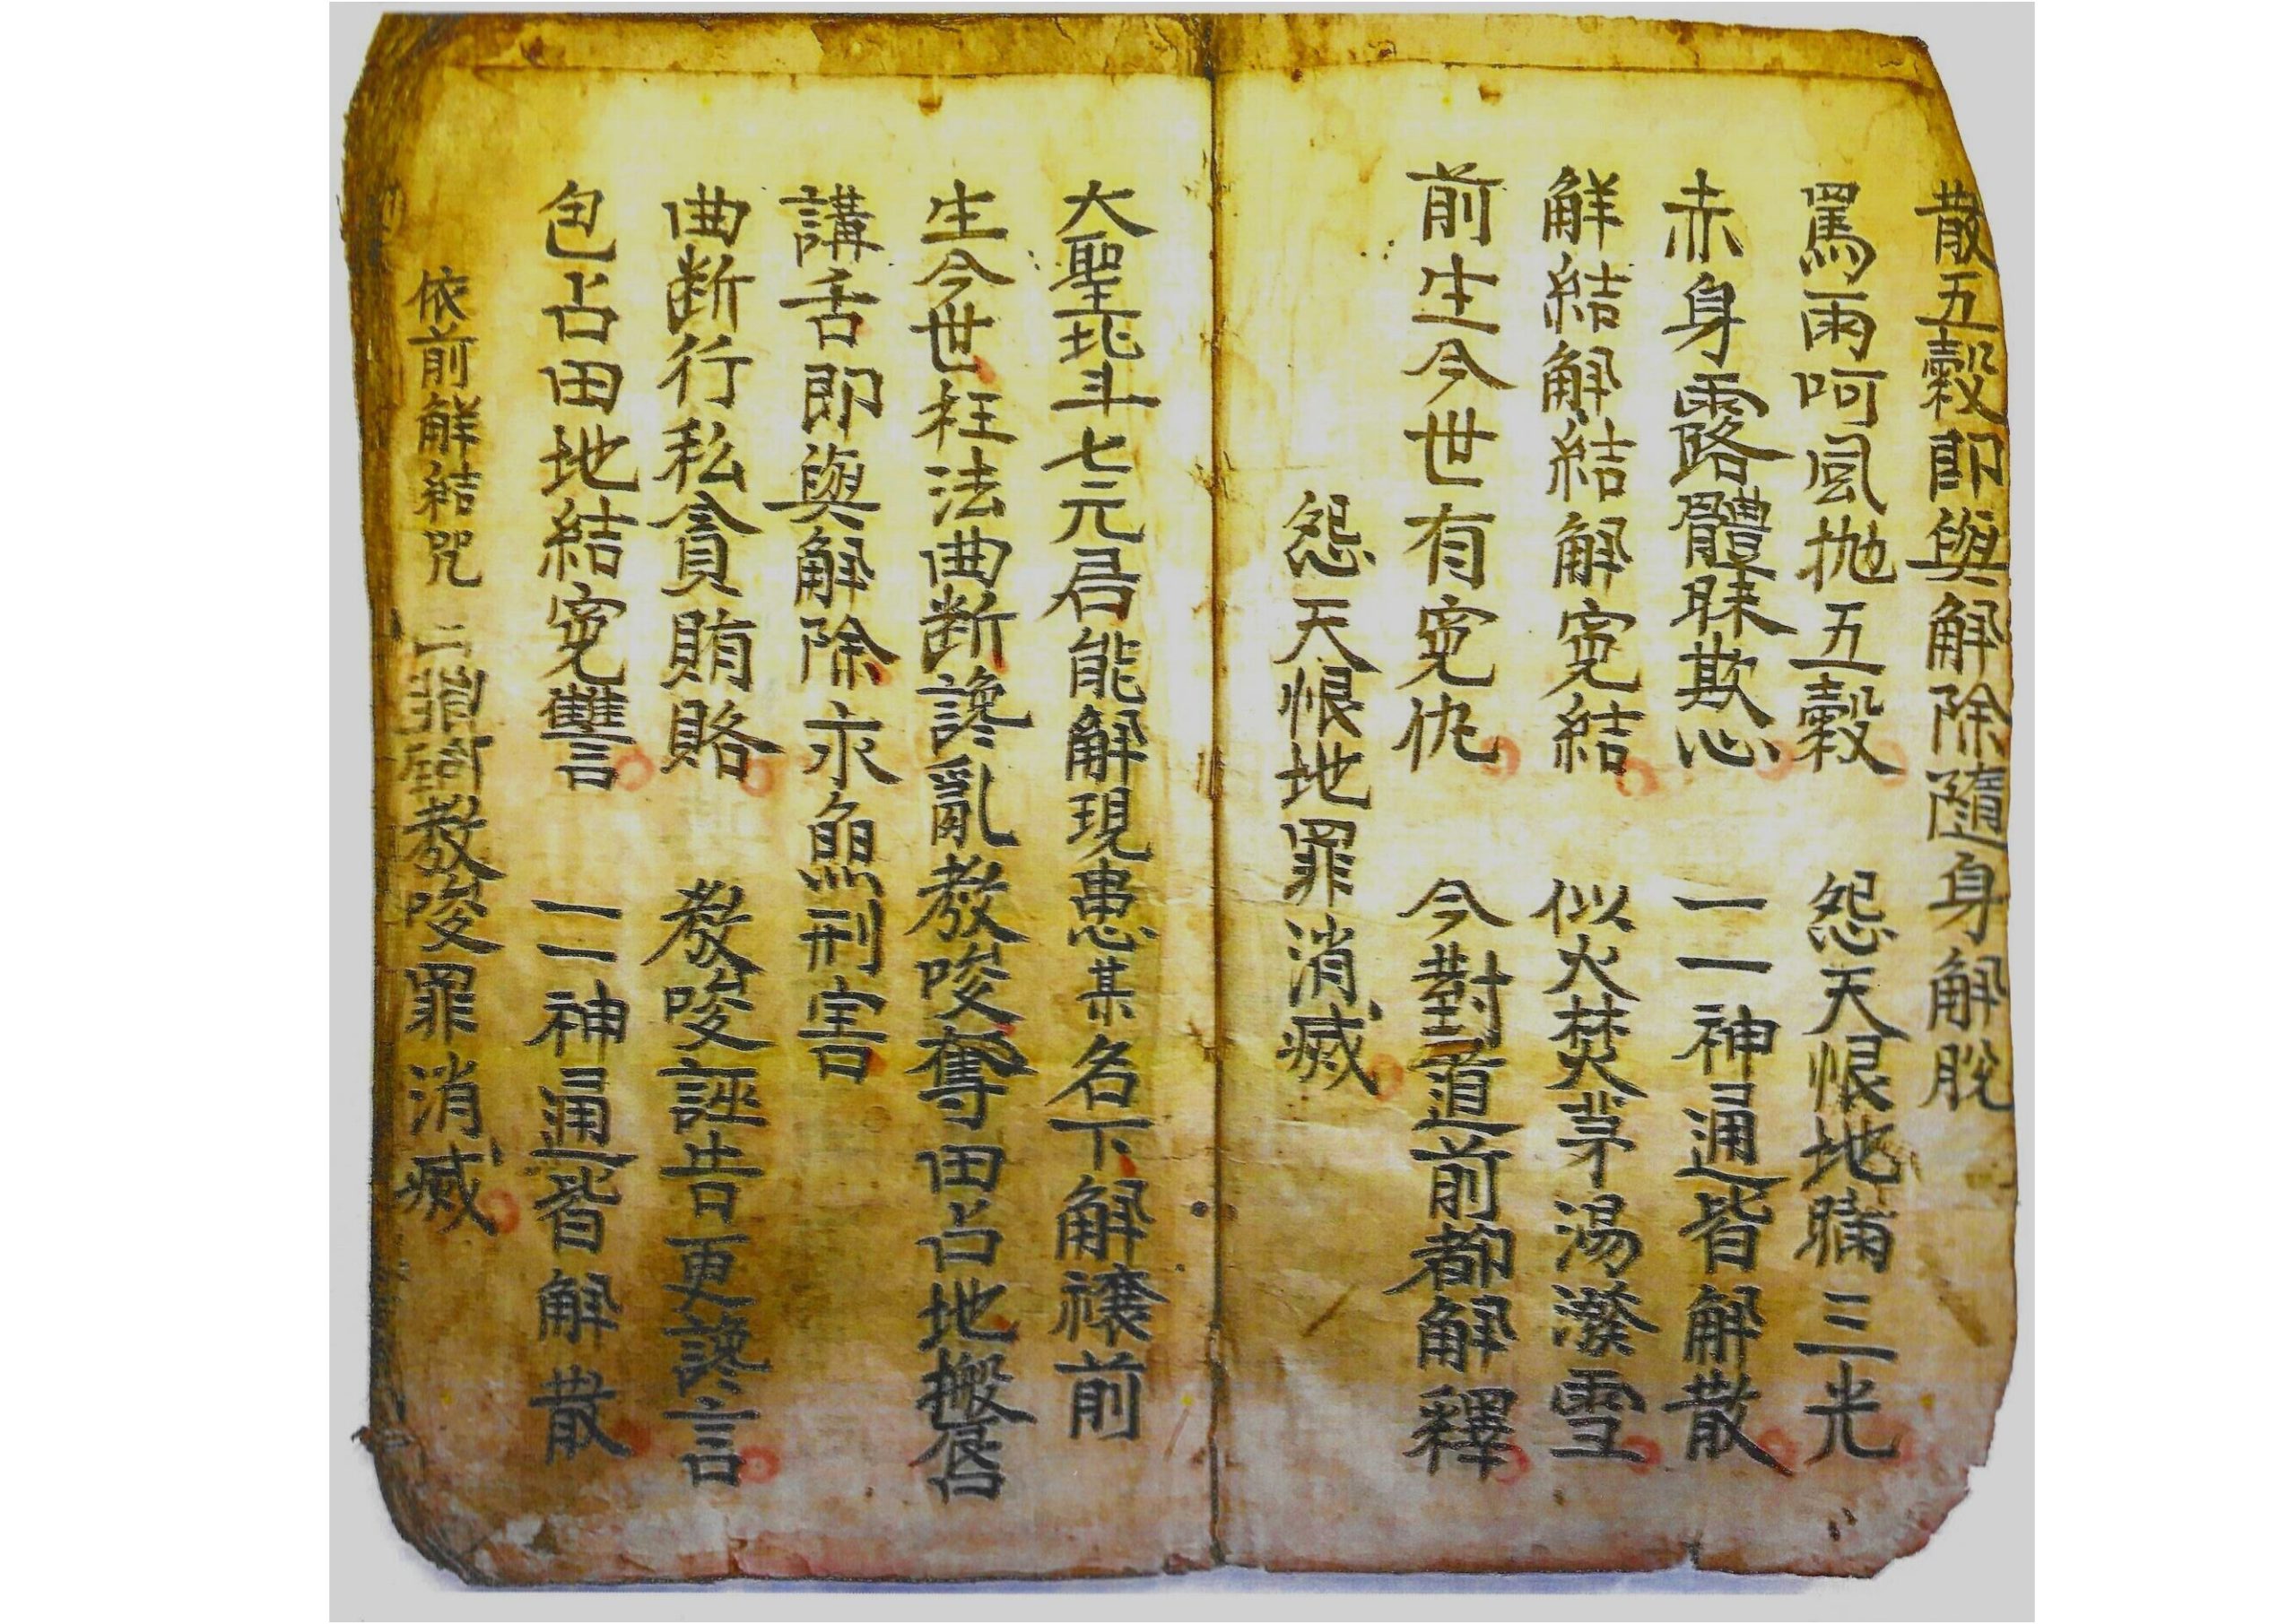 散五穀即與解除隨身解脫
罵雨呵風拋五穀 怨天恨地瞞三光
赤身露體昧欺心 一一神通皆解散
解結解結解寃結 似火焚茅湯潑雪
前生今世有寃仇 今對道前都解釋
怨天恨地罪消滅
大聖北斗七元君能解現患某名下解禳前
生今世枉法曲断讒亂教唆奪田占地搬唇
講舌即與解除永無刑害
曲断行私貪賄賂 教唆誣告更讒言
包占田地結寃讐 一一神通皆解散
依前解結咒 二 教唆罪消滅